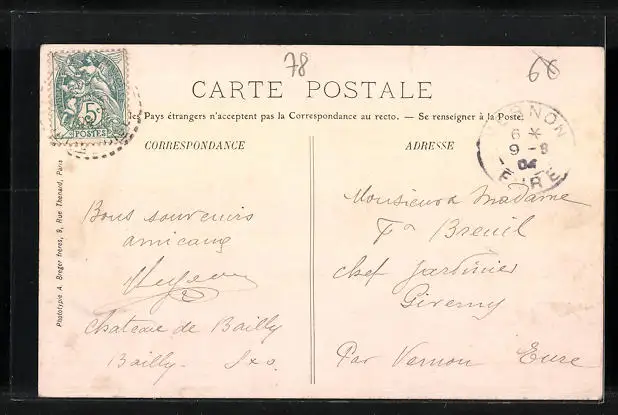 78
66
CARTE POSTALE
les Pays étrangers n'acceptent pas la Correspondance au recto. — Se renseigner à la Poste.
5c
POSTES
VERNON
6 *
9 - 9
04
EURE
CORRESPONDANCE
ADRESSE
Phototypie A. Breger frères, 9, Rue Thenard, Paris
Bons souvenirs
amicaux
Chateau de Bailly
Bailly. Sxo.
Monsieur & Madame
Breuil
chef jardinier
Giverny
Par Vernon Eure